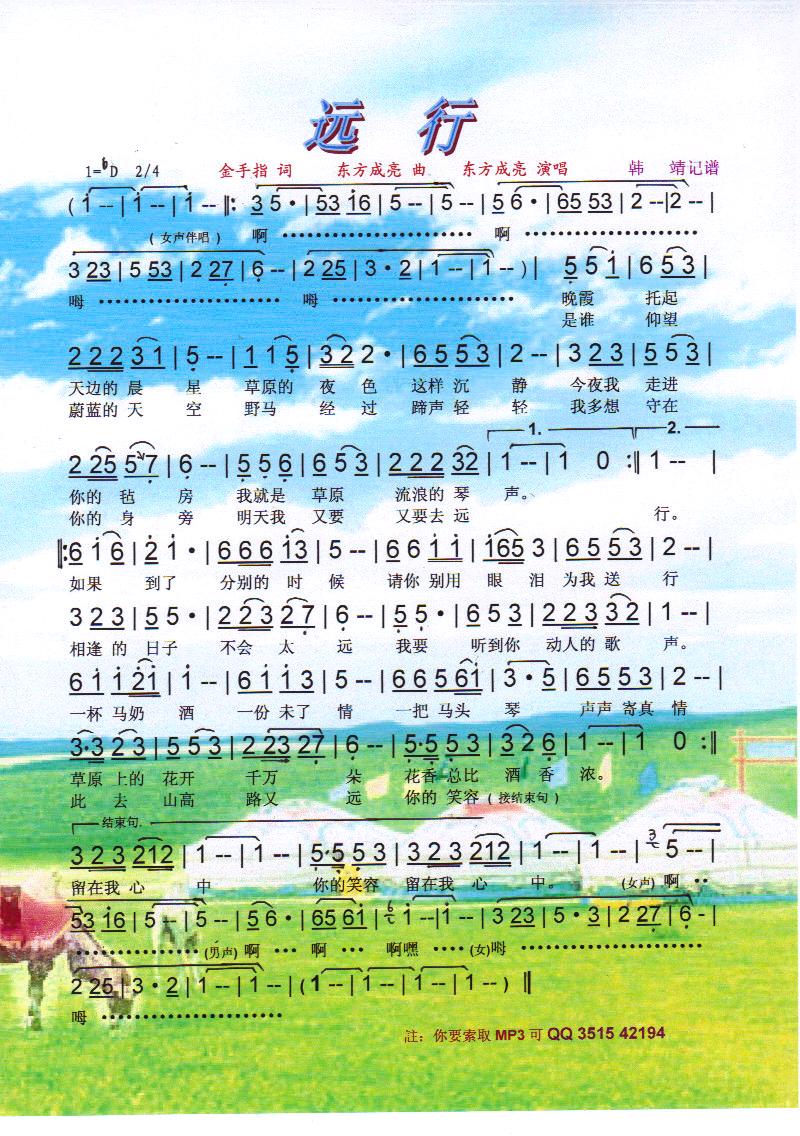 远 行
1=♭D 2/4 金手指 词 东方成亮 曲 东方成亮 演唱 韩 靖记谱
( 1̇ -- | 1̇ -- | 1̇ -- ‖: 3 5 · | 53 1̇6 | 5 -- | 5 -- | 5 6 · | 65 53 | 2 -- | 2 -- |
(女声伴唱) 啊 ·················· 啊 ··················
3 23 | 5 53 | 2 27 | 6 -- | 2 25 | 3 · 2 | 1 -- | 1 -- ) | 5 5 1̇ | 6 5 3 |
呣 ·················· 呣 ·················· 晚霞 托起
是谁 仰望
2 2 2 3 1 | 5 -- | 1 1 5 | 3 2 2 · | 6 5 5 3 | 2 -- | 3 2 3 | 5 5 3 |
天边的 晨 星 草原的 夜 色 这样 沉 静 今夜我 走进
蔚蓝的 天 空 野马 经 过 蹄声 轻 轻 我多想 守在
1. 2.
2 25 5 7 | 6 -- | 5 5 6 | 6 5 3 | 2 2 2 32 | 1 -- | 1 0 :‖ 1 -- |
你的 毡 房 我就是 草原 流浪的 琴 声。
你的 身 旁 明天我 又要 又要去 远 行。
‖: 6 1̇ 6 | 2̇ 1̇ · | 6 6 6 1̇3 | 5 -- | 6 6 1̇ 1̇ | 1̇65 3 | 6 5 5 3 | 2 -- |
如果 到了 分别的 时 候 请你 别用 眼 泪 为我 送 行
3 2 3 | 5 5 · | 2 2 3 2 7 | 6 -- | 5 5 · | 6 5 3 | 2 2 3 3 2 | 1 -- |
相逢 的 日子 不会 太 远 我要 听到你 动人的 歌 声。
6 1̇ 1̇ 2̇1̇ | 1̇ -- | 6 1̇ 1̇ 3 | 5 -- | 6 6 5 6 1̇ | 3 · 5 | 6 5 5 3 | 2 -- |
一杯 马奶 酒 一份 未了 情 一把 马头 琴 声声 寄真 情
3·3 2 3 | 5 5 3 | 2 23 27 | 6 -- | 5·5 5 3 | 3 2 6 | 1 -- | 1 0 :‖
草原 上的 花开 千万 朵 花香 总比 酒 香 浓。
此 去 山高 路又 远 你的 笑容 (接结束句)
结束句.
3 2 3 212 | 1 -- | 1 -- | 5·5 5 3 | 3 2 3 212 | 1 -- | 1 -- | 5 -- |
留在我 心 中 你的笑容 留在我 心 中。 (女声) 啊 ··
53 1̇6 | 5 -- | 5 -- | 5 6 · | 65 61̇ | 1̇ -- | 1̇ -- | 3 23 | 5 · 3 | 2 27 | 6 - |
·················· (男声) 啊 ··· ·· 啊 ··· 啊嘿 ···· (女)呣 ··················
2 25 | 3 · 2 | 1 -- | 1 -- | ( 1 -- | 1 -- | 1 -- | 1 -- ) ‖
呣 ··················
註：你要索取 MP3 可 QQ 3515 42194